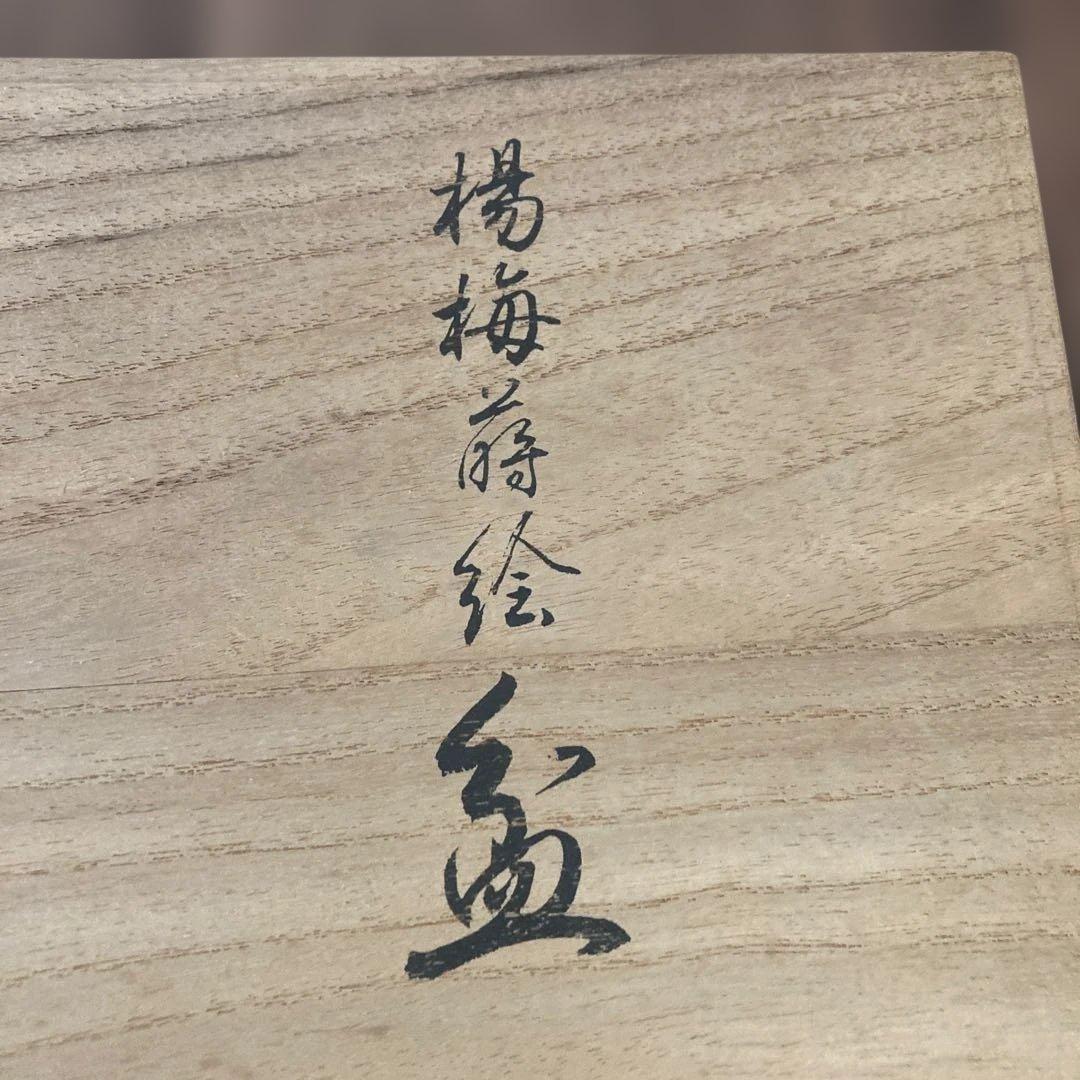 楊梅蒔絵盆